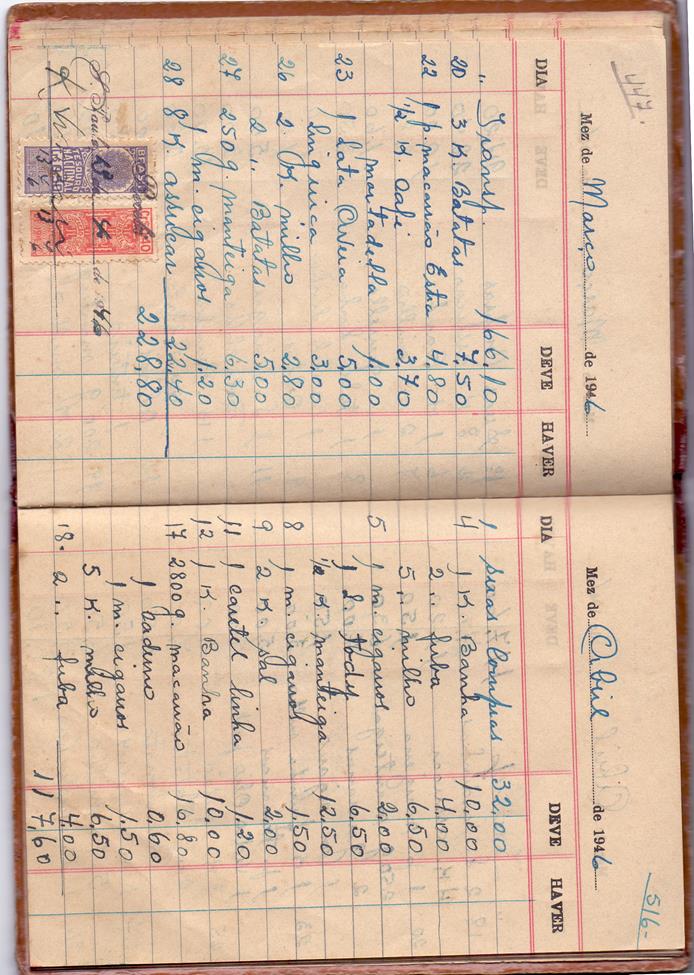 447.
Mez de Março de 1946
DIA DEVE HAVER
" Transp. 166,10
20 3 K. Batatas 7,50
22 1 p. macarrão Extra 4,80
1/2 K. Café 3,70
mortadella 1,00
23 1 lata 5,00
Linguiça 3,00
26 2 K. milho 2,80
2 ,, Batatas 5,00
27 250 g. manteiga 6,30
1 m. cigarros 1,20
28 8 K. assucar 22,40
228,80
S. Paulo de 1946
TESOURO NACIONAL
516-
Mez de Abril de 1946
DIA DEVE HAVER
1 suas Compras 32,00
4 1 K. Banha 10,00
2 ,, fuba 4,00
5 ,, milho 6,50
5 1 m. cigarros 2,00
1 Tody 6,50
1/2 K. manteiga 12,50
8 1 m. cigarros 1,50
9 2 K. sal 2,00
11 1 cartel linha 1,20
12 1 K. Banha 10,00
17 2800 g. macarrão 16,80
1 0,60
1 m. cigarros 1,50
5 K. milho 6,50
18. 2 ,, fuba 4,00
117,60